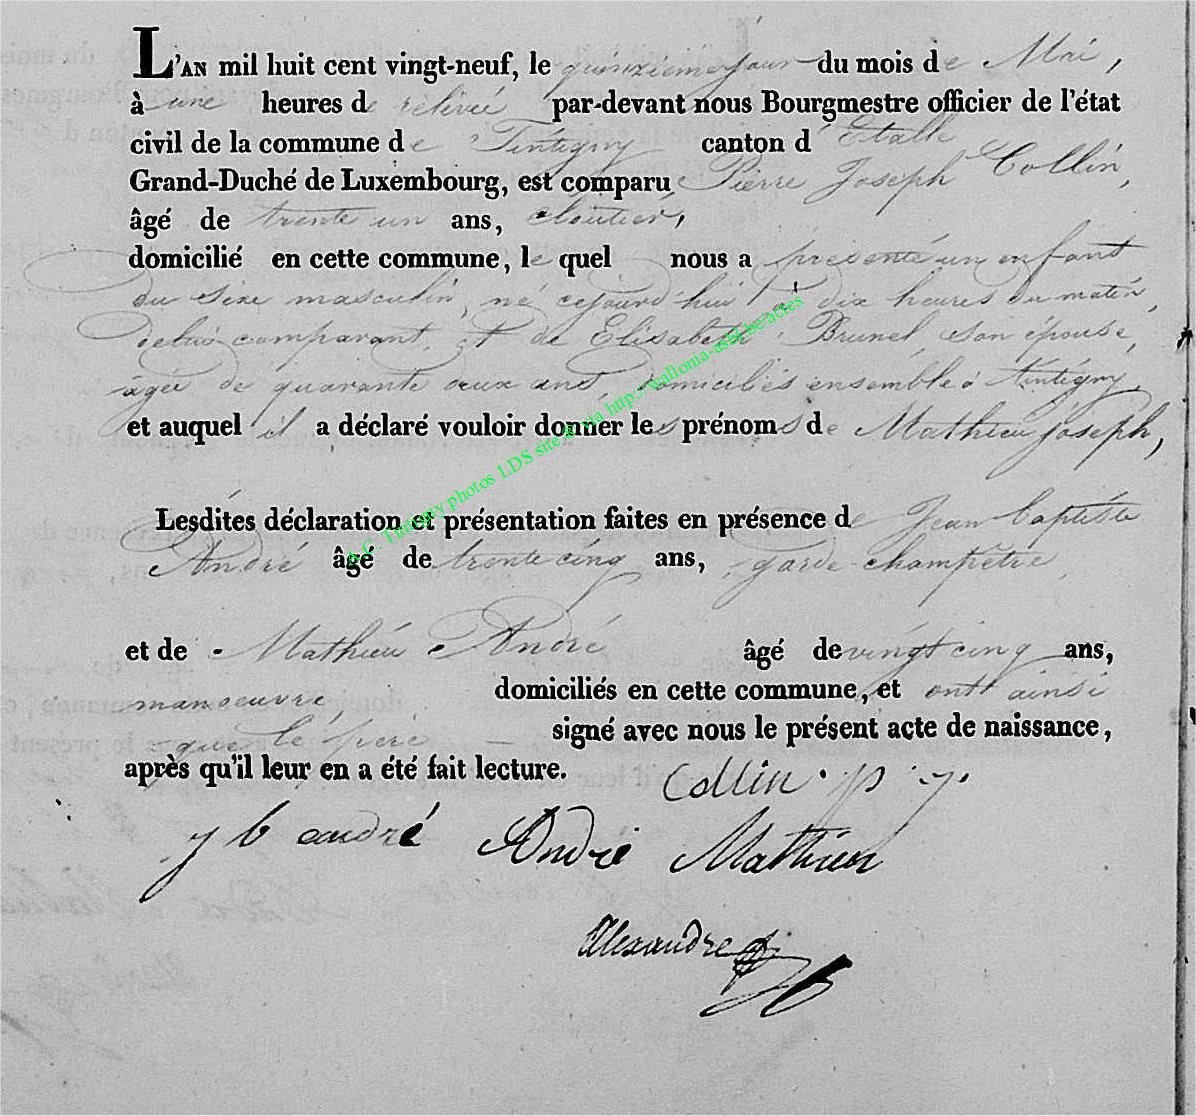 L'AN mil huit cent vingt-neuf, le quinzieme jour du mois de Mai,
à une heures de relevée par-devant nous Bourgmestre officier de l'état
civil de la commune de Tintigny canton d'Etalle
Grand-Duché de Luxembourg, est comparu Pierre Joseph Collin,
âgé de trente un ans, cloutier,
domicilié en cette commune, le quel nous a présenté un enfant
du sexe masculin, né cejourd'hui à dix heures du matin,
delui comparant, et de Elisabeth Brunel, son épouse,
âgée de quarante deux ans, domiciliés ensemble à Tintigny,
et auquel il a déclaré vouloir donner les prénoms de Mathieu joseph,
Lesdites déclaration et présentation faites en présence de Jean baptiste
André âgé de trente cinq ans, garde-champêtre,
et de Mathieu André âgé de vingt cinq ans,
manoeuvre, domiciliés en cette commune, et ont ainsi
que le père signé avec nous le présent acte de naissance,
après qu'il leur en a été fait lecture.
Collin . p . j.
j b andré André Mathieu
Alexandre
A.C. Tintigny photos LDS site & via http://wallonia-asbl.be/actes